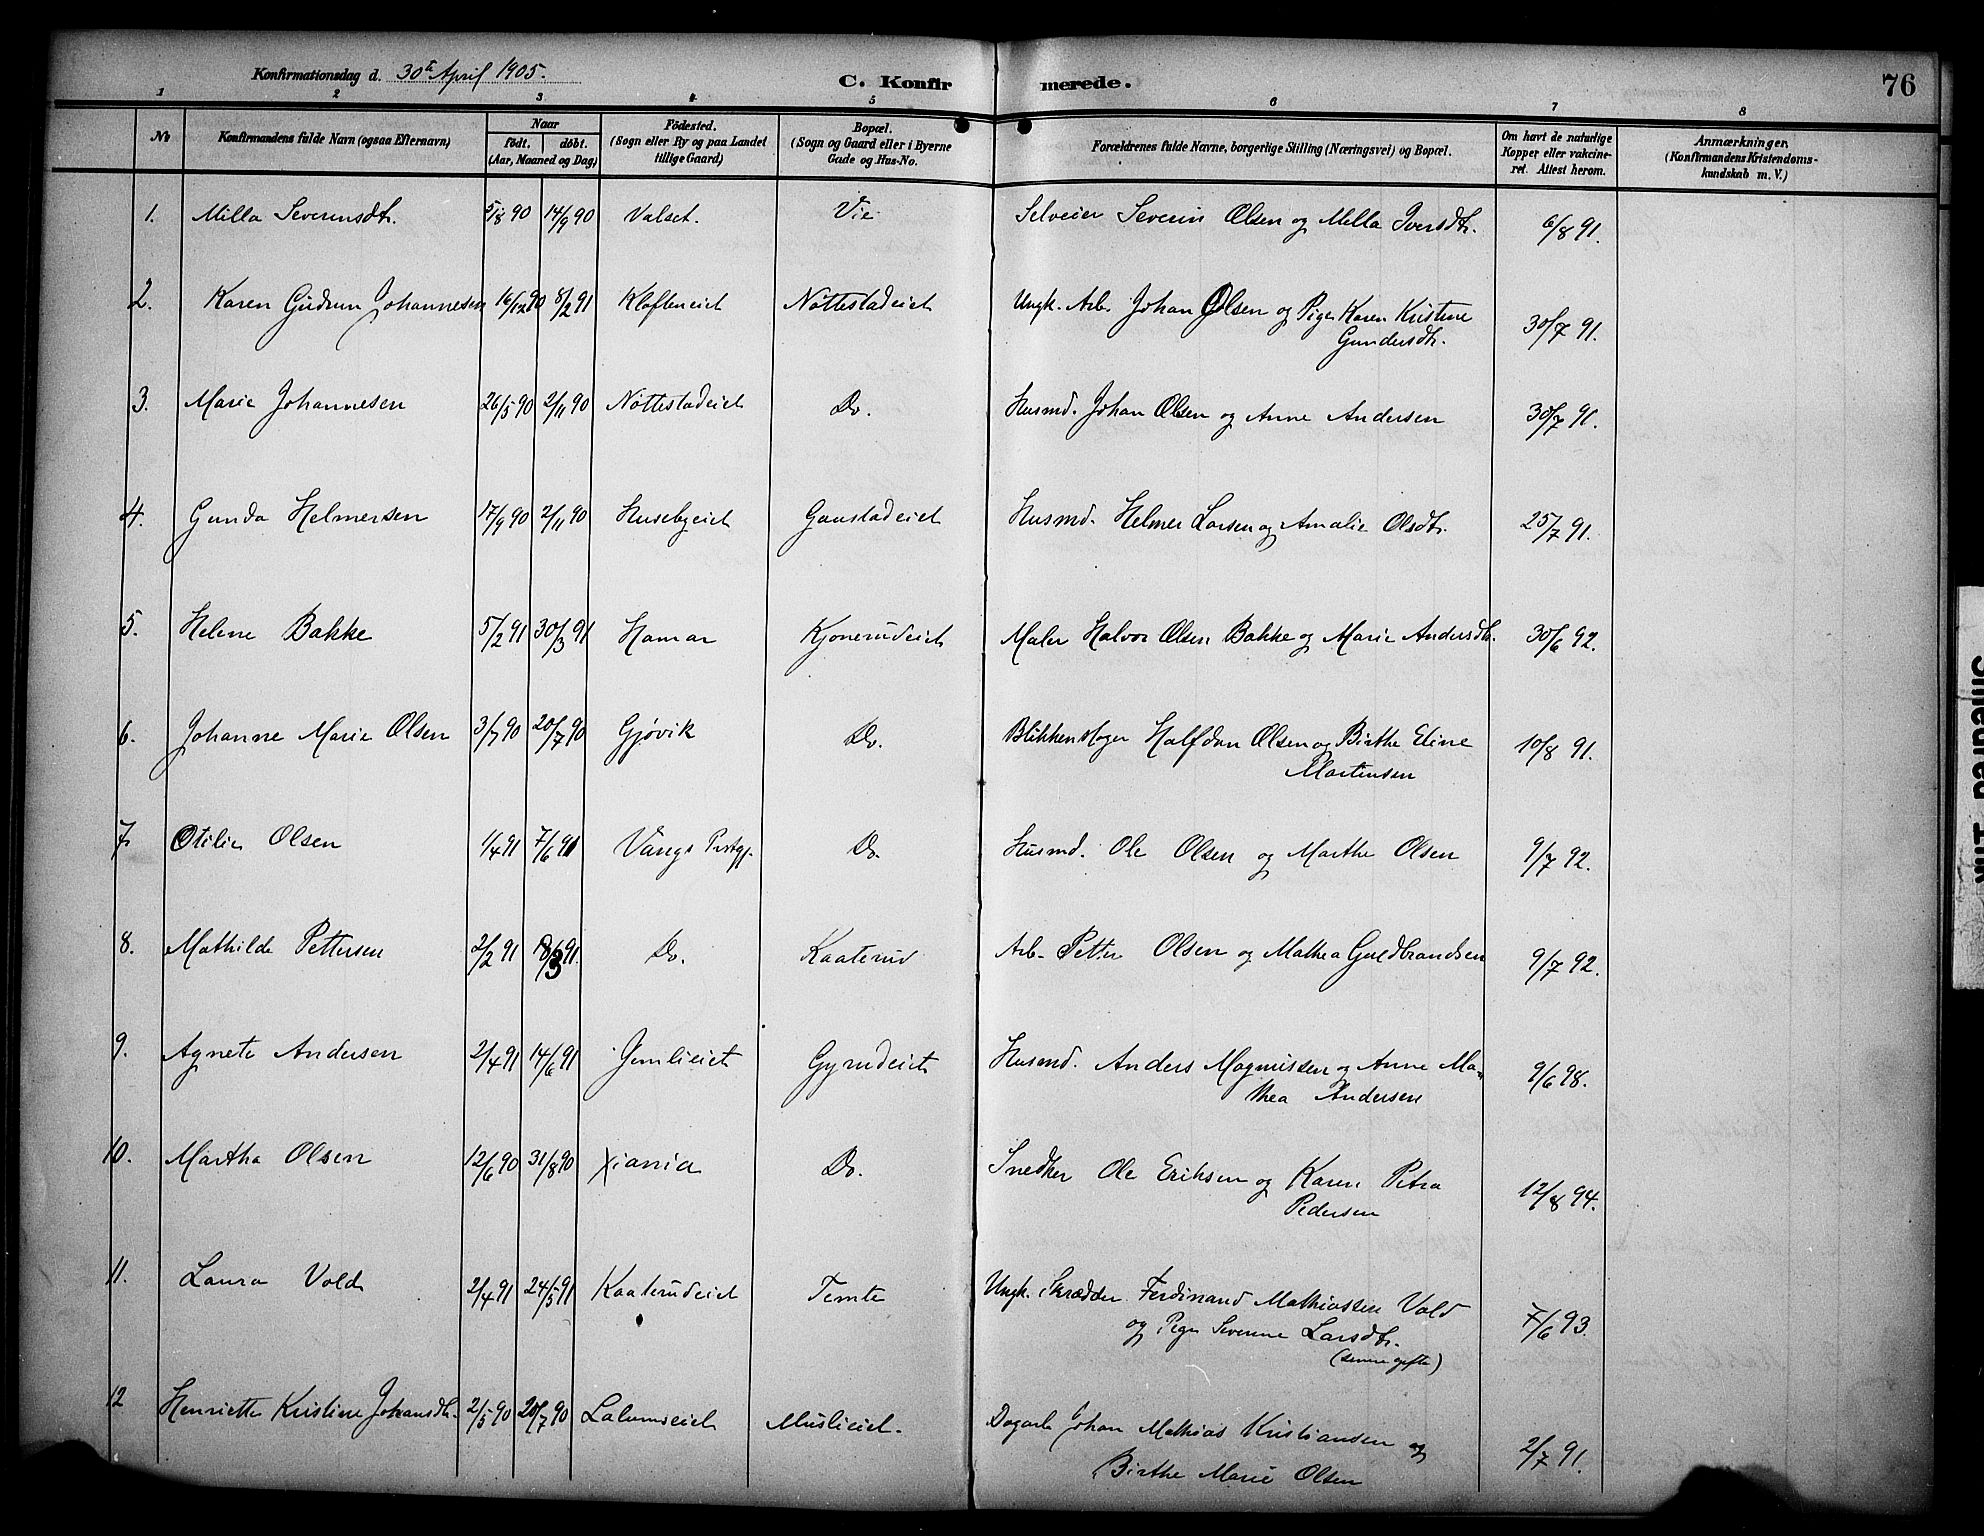 Konfirmationsdag d. 30te April 1905.
C. Konfir merede. 76
1 2 3 4 5 6 7 8
No Konfirmandens fulde Navn (ogsaa Efternavn) Naar født. døbt. (Aar, Maaned og Dag) Fødested. (Sogn eller By og paa Landet tillige Gaard) Bopæl. (Sogn og Gaard eller i Byerne Gade og Hus-No. Forældrenes fulde Navne, borgerlige Stilling (Næringsvei) og Bopæl. Om havt de naturlige Kopper eller vakcineret. Attest herom. Anmærkninger. (Konfirmandens Kristendomskundskab m. V.)
1. Milla Severinsdtr. 5/8 90 14/9 90 Valset. Vie Selveier Severin Olsen og Milla Iversdtr. 6/8 91.
2. Karen Gudrun Johannesen 16/12 90 8/2 91 Kløfteneiet Nøttestadeiet Ungk. Arb. Johan Olsen og Pige Karen Kristine
Gundersdtr. 30/7 91.
3. Marie Johannesen 26/5 90 2/11 90 Nøttestadeiet Do. Husmd. Johan Olsen og Anne Andersen 30/7 91.
4. Gunda Helmersen 17/9 90 2/11 90 Husebyeiet Gaustadeiet Husmd. Helmer Larsen og Amalie Olsdtr. 25/7 91.
5. Helene Bakke 5/2 91 30/3 91 Hamar Kjonerudeiet Maler Halvor Olsen Bakke og Marie Andersdtr. 30/6 92.
6. Johanne Marie Olsen 3/7 90 20/7 90 Gjøvik Do. Blikkenslager Halfdan Olsen og Birthe Eline
Martinsen 10/8 91.
7. Otilie Olsen 1/4 91 7/6 91 Vangs Prstgj. Do. Husmd. Ole Olsen og Marthe Olsen 9/7 92.
8. Mathilde Pettersen 2/2 91 18/3 91. Do. Kaaterud Arb. Petter Olsen og Mathea Guldbrandsen 9/7 92.
9. Agnete Andersen 2/4 91 14/6 91 Jemlieiet Gyrudeiet Husmd. Anders Magnussen og Anne Ma-
thea Andersen 9/6 98.
10. Martha Olsen 12/6 90 31/8 90 Xiania Do. Snedker Ole Eriksen og Karen Petra
Pedersen 12/8 94.
11. Laura Vold 2/4 91 24/5 91 Kaaterudeiet Temte Ungk. Skrædder Ferdinand Mathiassen Vold
og Pige Severine Larsdtr. 7/6 93.
(senere gifte)
12 Henriette Kristine Johansdtr. 2/5 90 20/7 90 Lalumseiet Muslieiet. Dagarb. Johan Mathias Kristiansen og
Birthe Marie Olsen 2/7 91.